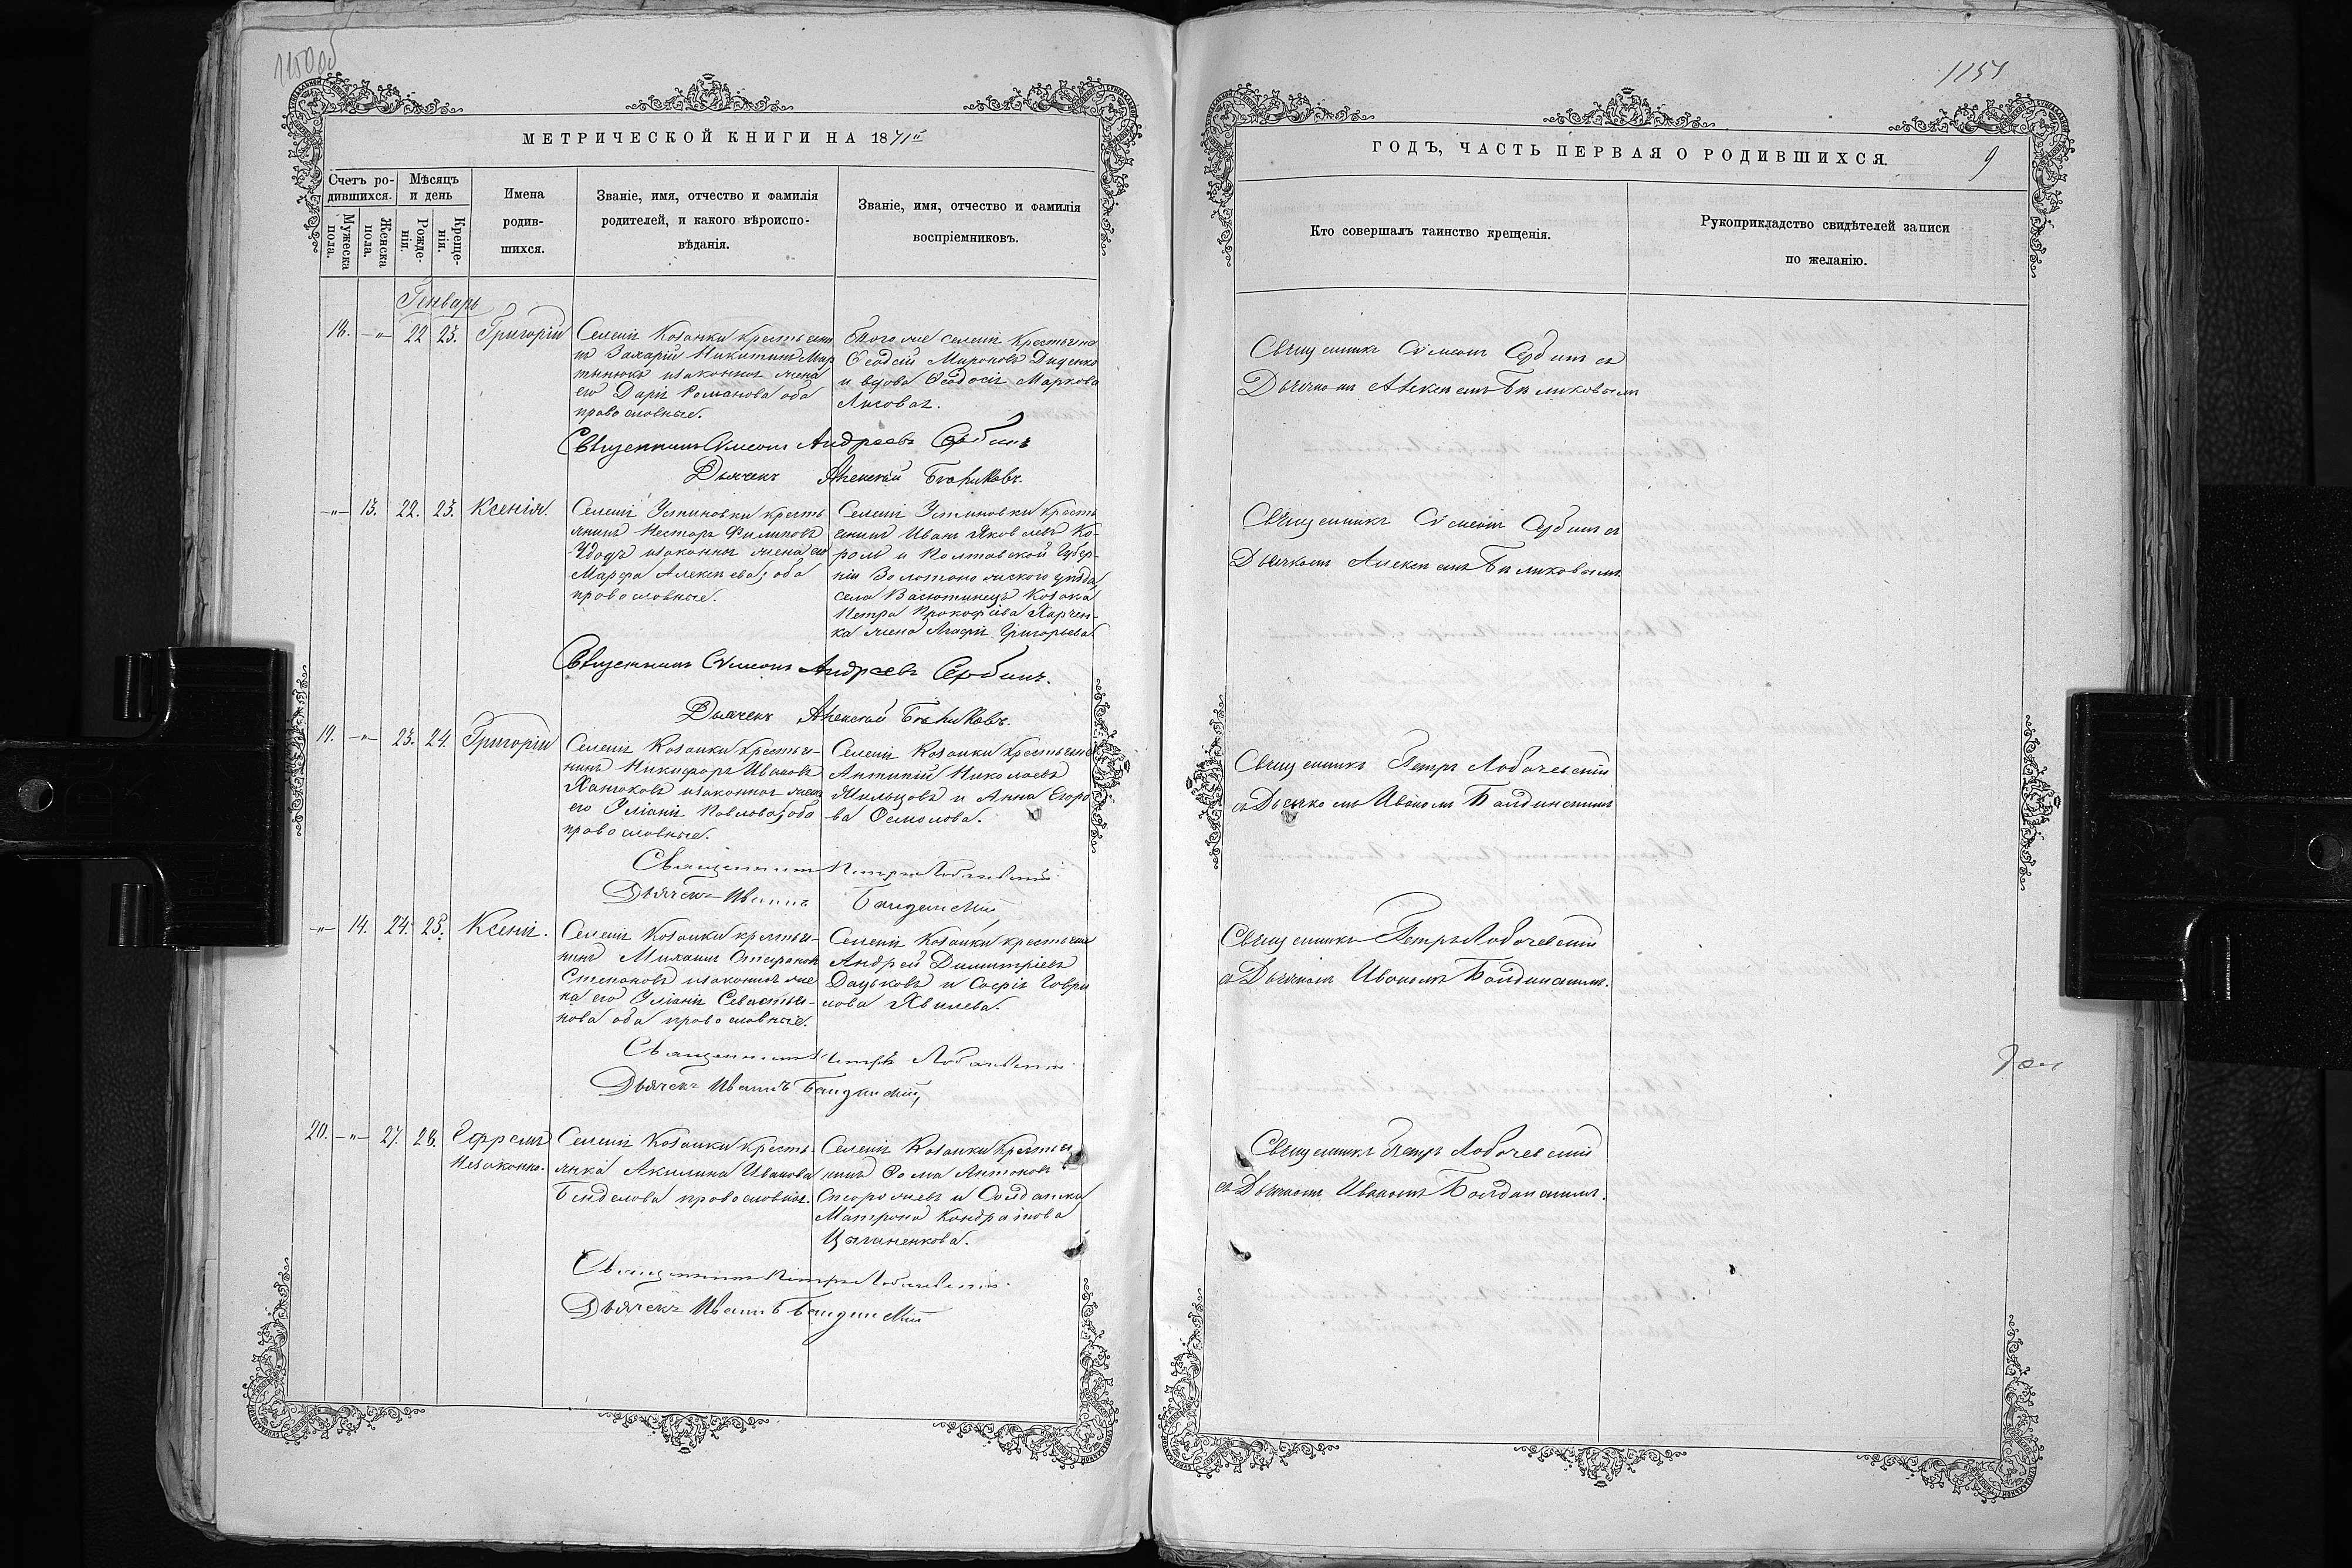 1151
МЕТРИЧЕСКОЙ КНИГИ НА 1871й
Счетъ ро-
дившихся.
Мѣсяцъ
и день
Мужеска
пола.
Женска
пола.
Рожде-
нія.
Креще-
нія.
Имена
родив-
шихся.
Званіе, имя, отчество и фамилія
родителей, и какого вѣроиспо-
вѣданія.
Званіе, имя, отчество и фамилія
воспріемниковъ.
Генварь
18. -"- 22 23. Григорій
Селенія Козанки крестьяни
нъ Захарій Никитинъ Мар
тынюкъ изаконная жена
его Дарія Романова оба
православные.
Тогоже селенія крестьяне
Ѳеодосій Мироновъ Диденко
и вдова Ѳеодосія Маркова
Лисовая.
Священникъ Симеонъ Андреевъ Сербинъ
Дьячекъ Алексѣй Бѣликовъ.
-"- 13. 22. 23. Ксенія.
Селенія Устиновки кресть
янинъ Несторъ Филиповъ
Удодъ изаконная жена его
Марфа Алексѣева; оба
православные.
Селенія Устиновки кресть
янинъ Иванъ Яковлевъ Ко-
роль и Полтавской Губер-
ніи Золотоношскаго уѣзда,
села Васютинецъ козака
Петра Прокофіева Харчен-
ка жена Агафія Григорьева.
Священникъ Симеонъ Андреевъ Сербинъ.
Дьячекъ Алексѣй Бѣликовъ.
19. -"- 23. 24. Григорій
Селенія Козанки крестья-
нинъ Никифоръ Ивановъ
изаконная жена
его Уліанія Павлова; оба
православные.
Селенія Козанки крестьяне
Антипій Николаевъ
Жильцовъ и Анна Егоро
ва
Священникъ Петръ Лобачевскій
Дьячекъ Иванъ Балдинскій
-"- 14. 24. 25. Ксенія.
Селенія Козанки крестья-
нинъ Михаилъ Стефановъ
Степановъ изаконная же
на его Уліанія Севастья-
нова оба православные.
Селенія Козанки крестьяне
Андрей Димитріевъ
Дацьковъ и Софія Гаври
лова
Священникъ Петръ Лобачевскій
Дьячекъ Иванъ Балдинскій
20. -"- 27. 28. Ефремъ
Незаконно.
Селенія Козанки кресть
янка Акилина Иванова
православная.
Селенія Козанки крестья
нинъ Ѳома Антоновъ
Сторожевъ и Солдатка
Матрона Кондратова
Цыганенкова.
Священникъ Петръ Лобачевскій.
Дьячекъ Иванъ Балдинскій
ГОДЪ, ЧАСТЬ ПЕРВАЯ О РОДИВШИХСЯ.
9
Кто совершалъ таинство крещенія.
Рукоприкладство свидѣтелей записи
по желанію.
Священникъ Симеонъ Сербинъ съ
Дьячкомъ Алексѣемъ Бѣликовымъ
Священникъ Симеонъ Сербинъ съ
Дьячкомъ Алексѣемъ Бѣликовымъ
Священникъ Петръ Лобачевскій
съ Дьячкомъ Иваномъ Балдинскимъ
Священникъ Петръ Лобачевскій
съ Дьячкомъ Иваномъ Балдинскимъ.
Священникъ Петръ Лобачевскій
съ Дьячкомъ Иваномъ Балдинскимъ.